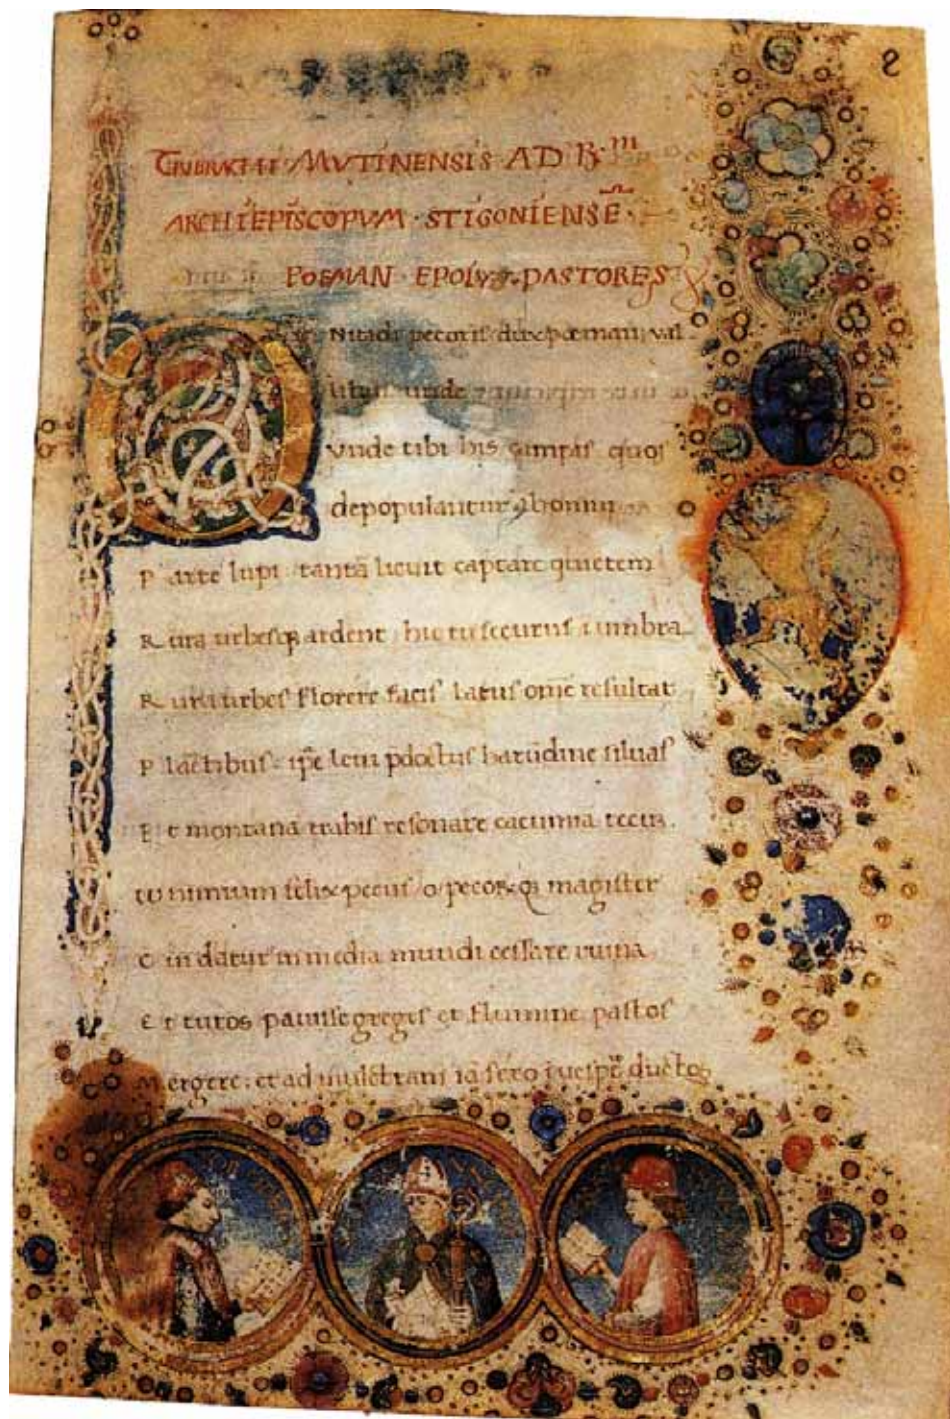 e
TRIBRACHI MVTINENSIS AD R·m
ARCHIEPISCOPVM · STIGONIENSĒ ·
POEMAN · EPOLVS · PASTORES
Nitidi pecoris dux poeman, val
unde
Vnde tibi his campis quos
depopulantur ab omni
P arte lupi tantā licuit captare quietem
R ura urbesqꝫ ardent hic tu securus i umbra
R ura urbes florere facis latus om̄e resultat
P lāctibus ip̄e leui p̄doctus harūdine siluas
E t montana trabis resonare cacumīa tecū
O nimium fēlix pecus o pecorisqꝫ magister
C ui datur in media mundi cessare ruina
E t tutos pauisse greges et flumine pastos
M ergere: et ad mulctram iā sero uesp̄e ductos